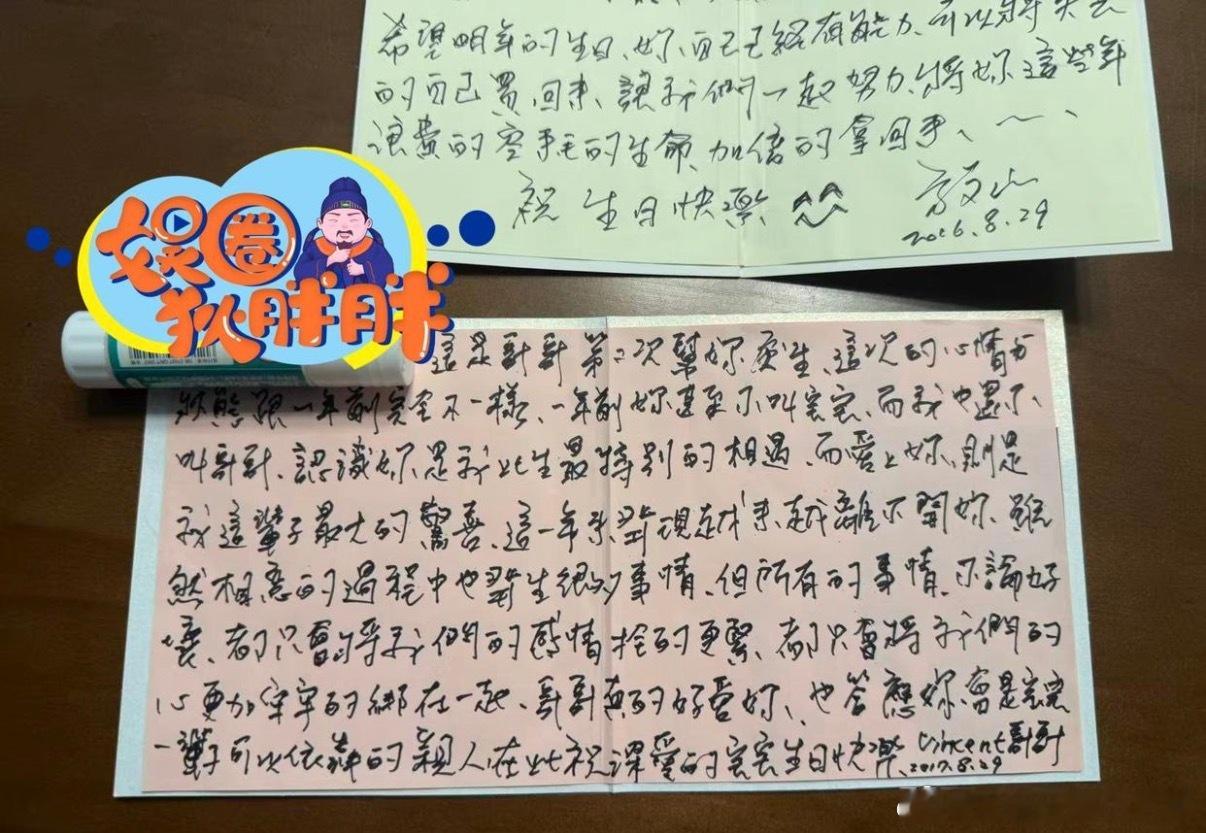 希望明年的生日、妳、自己已經有能力、可以將失去
的自己買、回來、讓我們一起努力、將妳這些年
浪費的空白的生命、加倍的拿回來、~、
祝 生日快樂 ^^
2016.8.29
娱圈
狄胖胖
這是哥哥第二次幫妳慶生、這次的心情與
狀態跟一年前完全不一樣、一年前妳甚至不叫宝宝、而我也還不
叫哥哥、認識妳是我此生最特別的相遇、而愛上妳、則是
我這輩子最大的驚喜、這一年來發現越來越離不開妳、雖
然相戀的過程中也發生很多事情、但所有的事情、不論好
壞、都只會將我們的感情拴的更緊、都只會將我們的
心更加牢牢的綁在一起、哥哥真的好愛妳、也答應妳會是宝宝
一輩子可以依靠的親人在此祝深愛的宝宝生日快樂、Vincent哥哥
2017.8.29